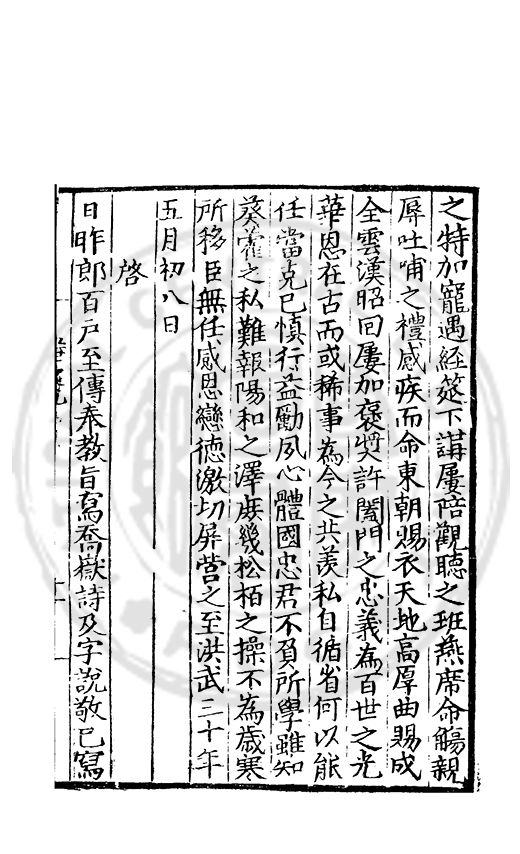 之特加寵遇經筵下講屢陪觀聽之班燕席命觴親
辱吐哺之禮感疾而命東朝賜衣天地高厚曲賜成
全雲漢昭回屢加褒奬許闔門之忠義為百世之光
華恩在古而或稀事為今之共羨私自循省何以能
任當克己慎行益勵夙心體國忠君不負所學雖知
葵藿之私難報陽和之澤庶幾松栢之操不為歲寒
所移臣無任感恩戀德激切屏營之至洪武三十年
五月初八日
啓
日昨郎百戶至傳奉教旨寫喬嶽詩及字說敬已寫